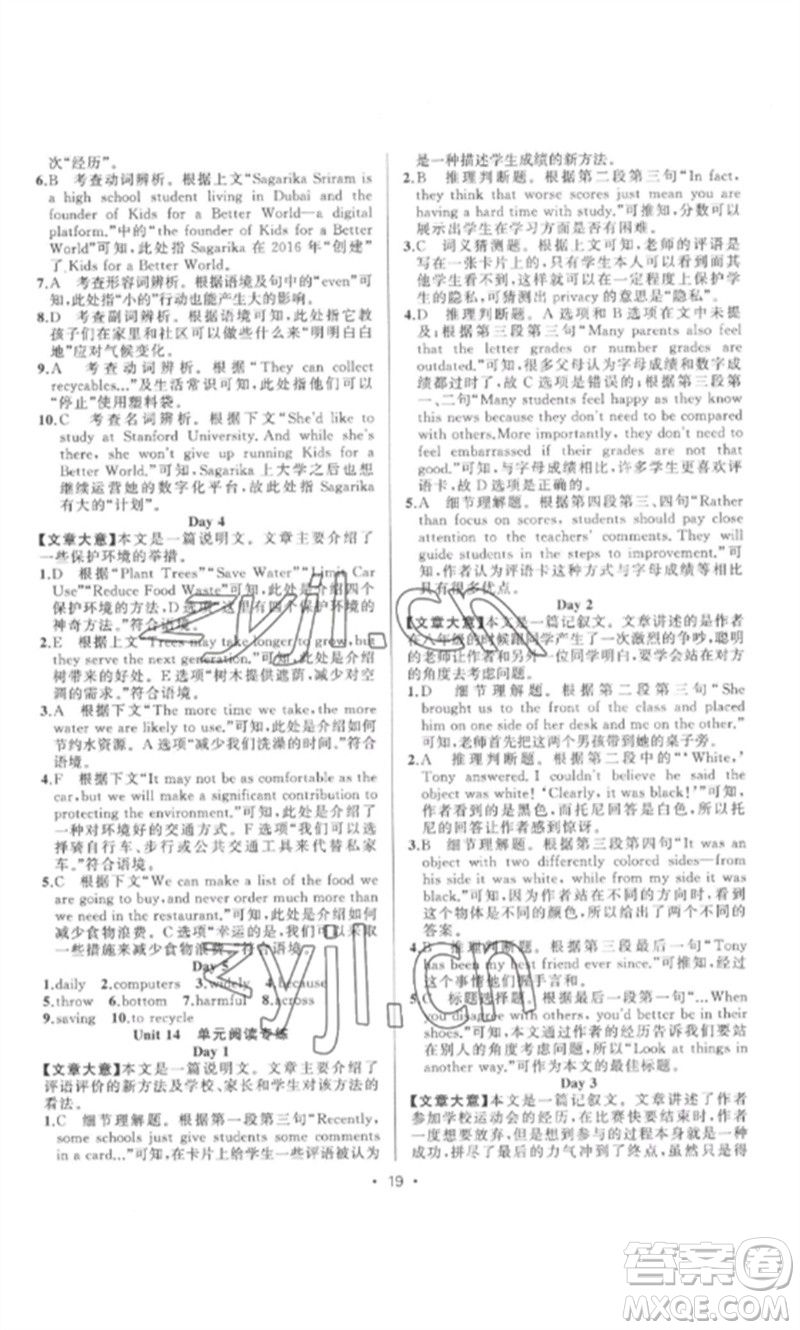 次“经历”。
6.B 考查动词辨析。根据上文“Sagarika Sriram is
a high school student living in Dubai and the
founder of Kids for a Better World—a digital
platform.”中的“founder of Kids for a Better
World”可知，此处指 Sagarika 在 2016 年“创建”
了 Kids for a Better World。
7.A 考查形容词辨析。根据语境及句中的“even”可
知，此处指“小的”行动也能产生大的影响。
8.D 考查副词辨析。根据语境可知，此处指它教
孩子们在家里和社区可以做些什么来“明明白白
地”应对气候变化。
9.A 考查动词辨析。根据“They can collect
recycables...”及生活常识可知，此处指他们可以
“停止”使用塑料袋。
10.C 考查名词辨析。根据下文“She'd like to
study at Stanford University. And while she's
there, she won't give up running Kids for a
Better World.”可知，Sagarika 上大学之后也想
继续运营她的数字化平台，故此处指 Sagarika
有大的“计划”。
Day 4
【文章大意】本文是一篇说明文。文章主要介绍了
一些保护环境的举措。
1.D 根据“Plant Trees”“Save Water”“Limit Car
Use”“Reduce Food Waste”可知，此处是介绍四个
保护环境的方法，D 选项“这是拯救环境的四种
神奇方法。”符合语境。
2.E 根据上文“Trees may take longer to grow, but
they serve the next generation.”可知，此处是介绍植
树带来的好处。E 选项“树木提供遮荫，减少对空
调的需求。”符合语境。
3.A 根据下文“The more time we take, the more
water we are likely to use.”可知，此处是介绍如何
节约水资源。A 选项“减少我们洗澡的时间。”符合
语境。
4.F 根据下文“It may not be as comfortable as the
car, but we will make a significant contribution to
protecting the environment.”可知，此处是介绍了
一种对环境好的交通方式。F 选项“我们可以选
择骑自行车、步行或公共交通工具来代替私家
车。”符合语境。
5.C 根据下文“We can make a list of the food we
are going to buy, and never order much more than
we need in the restaurant.”可知，此处是介绍如何
减少食物浪费。C 选项“幸运的是，我们可以采取
一些措施来减少食物浪费。”符合语境。
Day 5
1.daily 2.computers 3.widely 4.because
5.throw 6.bottom 7.harmful 8.across
9.saving 10.to recycle
Unit 14 单元阅读专练
Day 1
【文章大意】本文是一篇说明文。文章主要介绍了
评语评价的新方法及学校、家长和学生对该方法的
看法。
1.C 细节理解题。根据第一段第三句“Recently,
some schools just give students some comments
in a card...”可知，在卡片上给学生一些评语被认为
是一种描述学生成绩的新方法。
2.B 推理判断题。根据第二段第三句“In fact,
they think that worse scores just mean you are
having a hard time with study.”可推知，分数可以
展示出学生在学习方面是否有困难。
3.C 词义猜测题。根据上文可知，老师的评语是
写在一张卡片上的，只有学生本人可以看到，其他
学生看不到，这就可以在一定程度上保护学生
的隐私，可猜测出 privacy 的意思是“隐私”。
4.D 推理判断题。A 选项和 B 选项在文中未提
及；根据第三段第三句“Many parents also feel
that the letter grades or number grades are
outdated.”可知，很多父母认为字母成绩和数字成
绩都过时了，故 C 选项是错误的；根据第三段第
一、二句“Many students feel happy as they know
this news because they don't need to be compared
with others.More importantly, they don't need to
feel embarrassed if their grades are not that
good.”可知，与字母成绩相比，许多学生更喜欢评
语卡，故 D 选项是正确的。
5.A 细节理解题。根据第四段第三、四句“Rather
than focus on scores, students should pay close
attention to the teachers' comments. They will
guide students in the steps to improvement.”可
知，作者认为评语卡这种方式与字母成绩等相比
有很多优点。
Day 2
【文章大意】本文是一篇记叙文。文章讲述的是作者
在六年级的时候跟同学产生了一次激烈的争吵，聪明
的老师让作者和另外一位同学明白，要学会站在对方
的角度去考虑问题。
1.D 细节理解题。根据第二段第三句“She
brought us to the front of the class and placed
him on one side of her desk and me on the other.”
可知，老师首先把这两个男孩带到她的桌子旁。
2.A 推理判断题。根据第二段中的“‘White,’
Tony answered. I couldn't believe he said the
object was white! ‘Clearly, it was black!’”可知，
作者看到的是黑色，而托尼的回答是白色，所以托
尼的回答让作者感到惊讶。
3.B 细节理解题。根据第三段第四句“It was an
object with two differently colored sides—from
his side it was white, while from my side it was
black.”可知，因为作者站在不同的方向时，看到
这个物体是不同的颜色，所以给出了两个不同的
答案。
4.B 推理判断题。根据第四段最后一句“Tony
has become my best friend ever since.”可推知，通
过这个事情他们握手言和。
5.C 标题选择题。根据最后一句“...When you
disagree with others, you'd be better to place
yourself in their shoes.”可知，本文的经历告诉我们
要从别人的角度考虑问题，所以“Look at things in
another way.”可作为本文的最佳标题。
Day 3
【文章大意】本文是一篇记叙文。文章讲述了作者
参加学校运动会的经历，在比赛快要结束时，作者
一度想要放弃，但是想到参与的过程本身就是一种
成功，拼尽了最后的力气冲到了终点，虽然只是得
• 19 •
zyjl.cn
zyjl.cn
答案圈
MXQE.COM